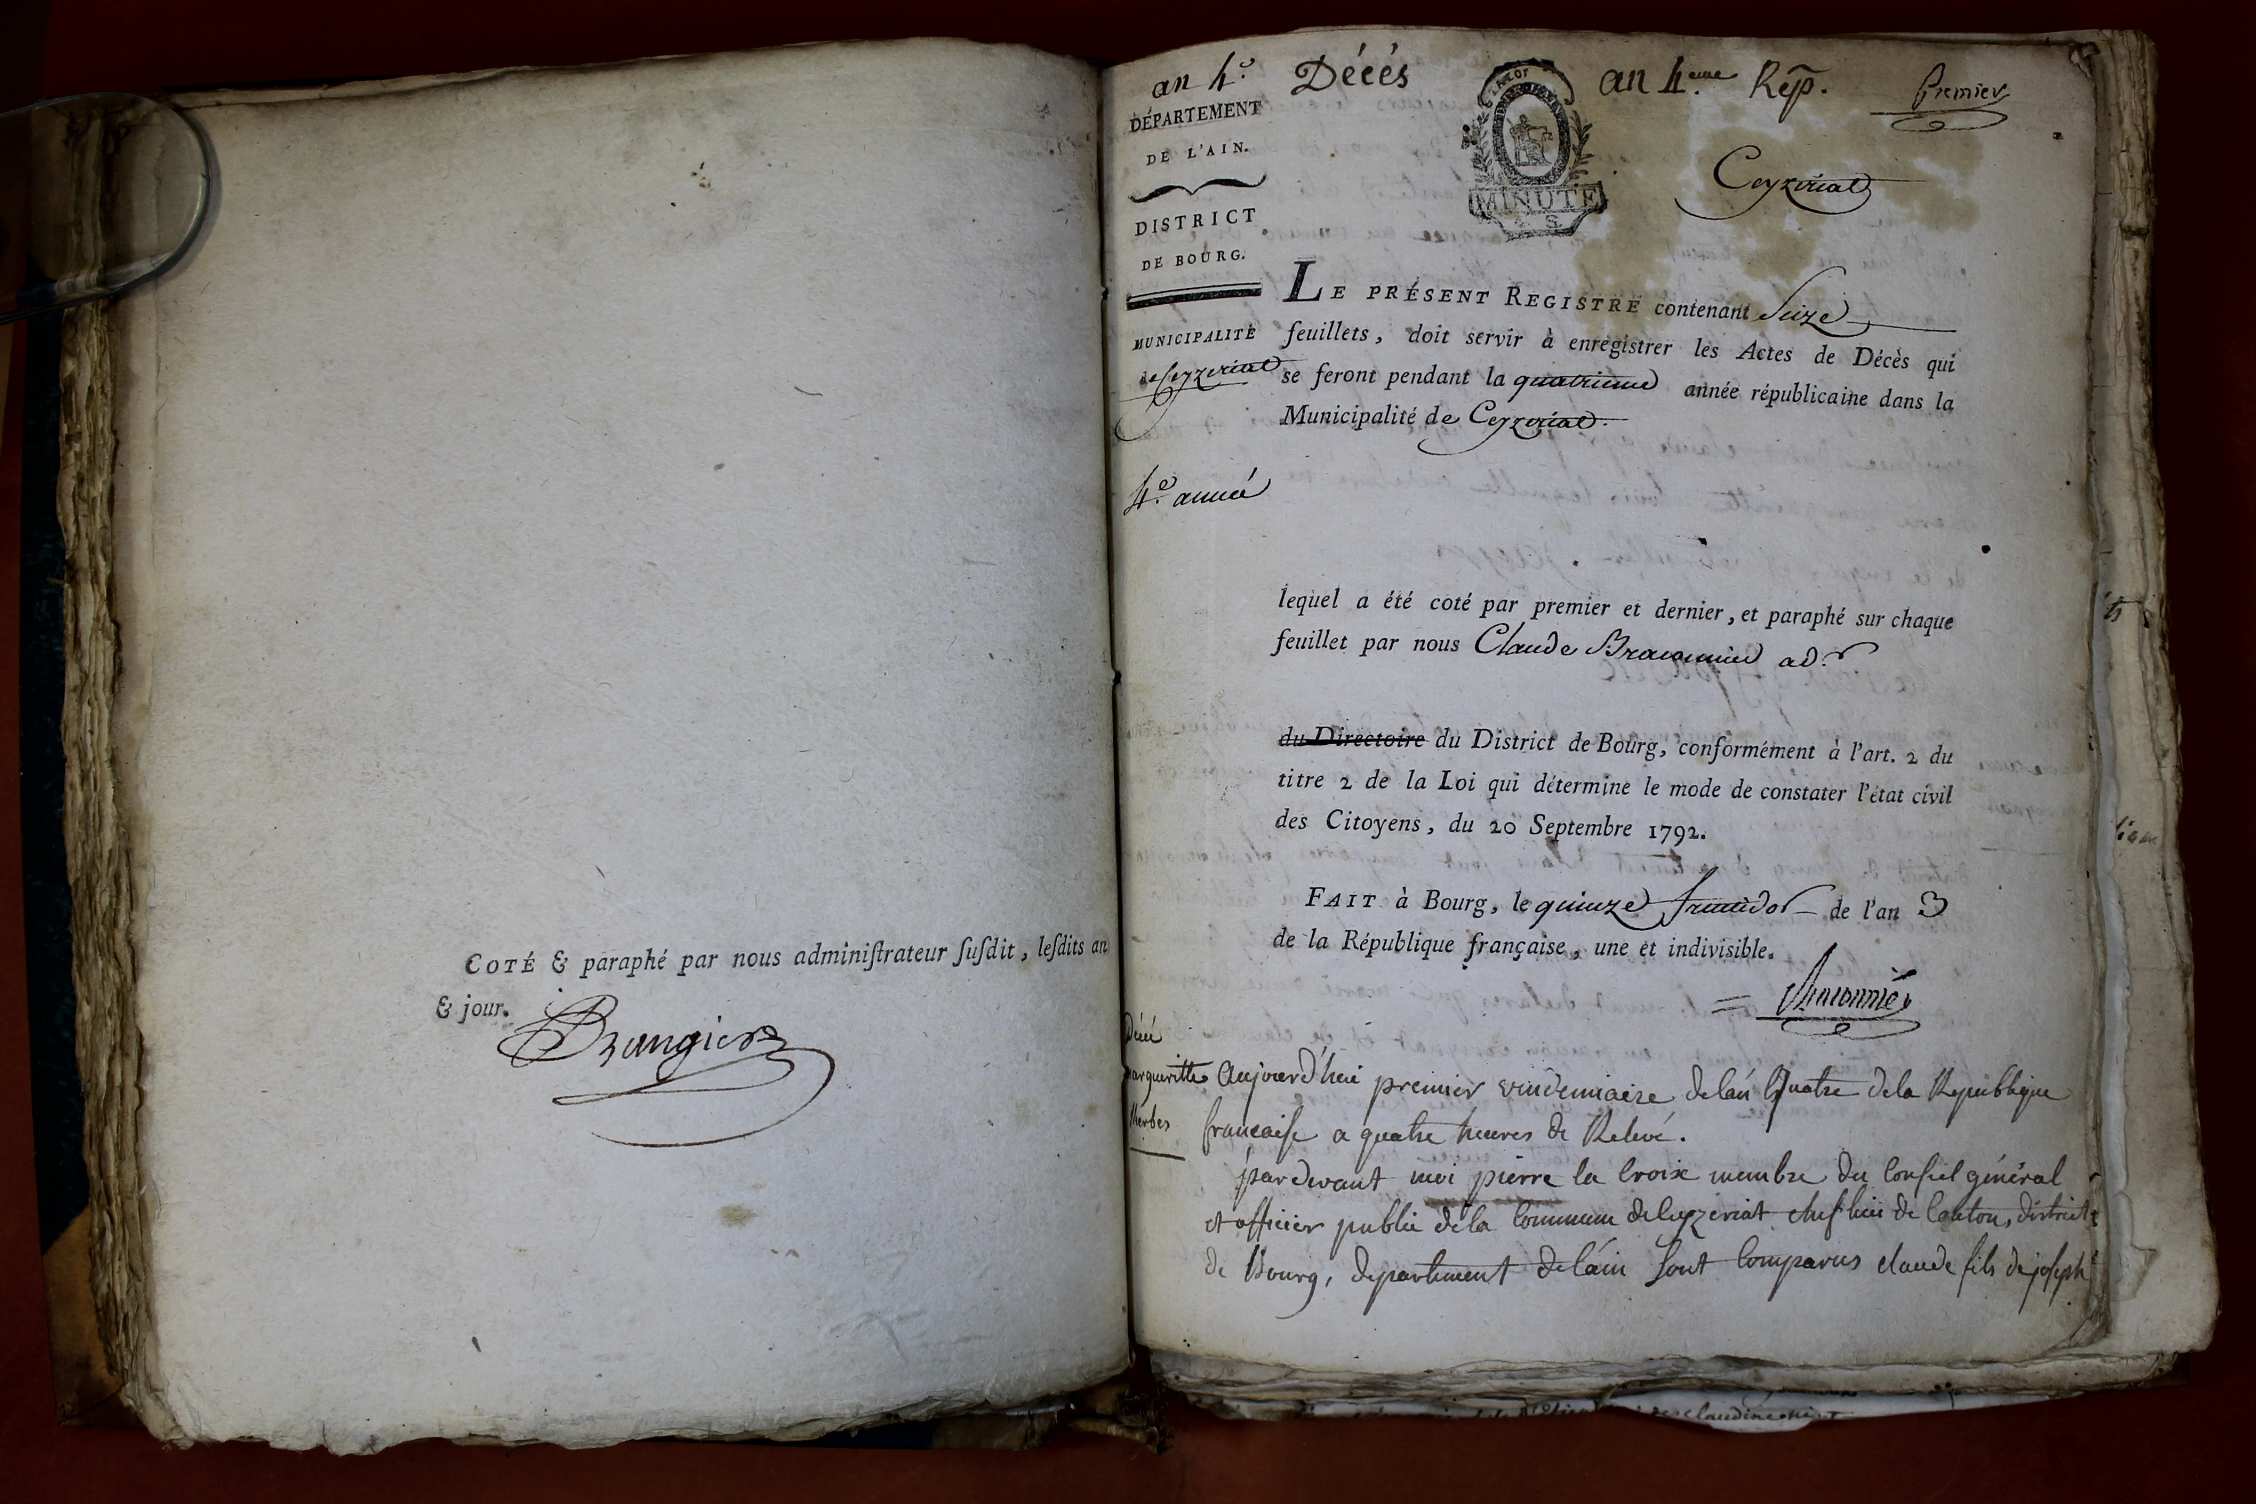 COTÉ & paraphé par nous adminiſtrateur ſuſdit, leſdits an
& jour.
Brangier
an 4e. Décès an 4.eme Rép. Premier
DÉPARTEMENT
DE L'AIN.
LA LOI
MINUTE
4 S
Ceyzeriat
DISTRICT
DE BOURG.
MUNICIPALITÉ
de Ceyzeriat
4.e année
LE PRÉSENT REGISTRE contenant Seize
feuillets, doit servir à enregistrer les Actes de Décès qui
se feront pendant la quatrieme année républicaine dans la
Municipalité de Ceyzeriat.
lequel a été coté par premier et dernier, et paraphé sur chaque
feuillet par nous Claude Braconnier ad.r
du Directoire du District de Bourg, conformément à l'art. 2 du
titre 2 de la Loi qui détermine le mode de constater l'état civil
des Citoyens, du 20 Septembre 1792.
FAIT à Bourg, le quinze fructidor de l'an 3
de la République française, une et indivisible.
Braconnier
Décé
Margueritte
Herbes
Aujourd'hui premier vindemiaire de lán Quatre de la Republique
francaise a quatre heures de Relevé.
pardevant moi pierre la Croix membre du Conseil général
et officier public de la Commune de Ceyzeriat chef lieu de Canton, district
de Bourg, departement de láin Sont Comparus claude fils de joseph